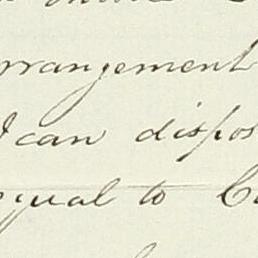 rrangement
I can dispos
equal to C